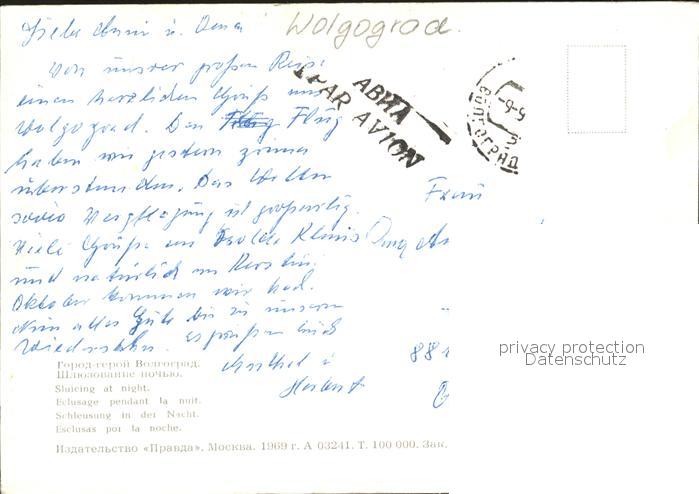 Wolgograd.
Liebe Anni u. Oma
Von unsrer großen Reise
einen herzlichen Gruß aus
Wolgograd. Den Flug
haben wir gestern prima
überstanden. Das Wetter
sowie Verpflegung ist großartig.
Viele Grüße an Isolde Klaus
und natürlich an Kerstin.
Oktober kommen wir
Nun alles Gute bis zu unserem
Wiedersehn. Es grüßen Euch
Herbert
АВИА
PAR AVION
Frau
88
privacy protection
Datenschutz
Город-герой Волгоград.
Шлюзование ночью.
Sluicing at night.
Eclusage pendant la nuit.
Schleusung in der Nacht.
Esclusas por la noche.
Издательство «Правда». Москва. 1969 г. А 03241. Т. 100 000. Зак.